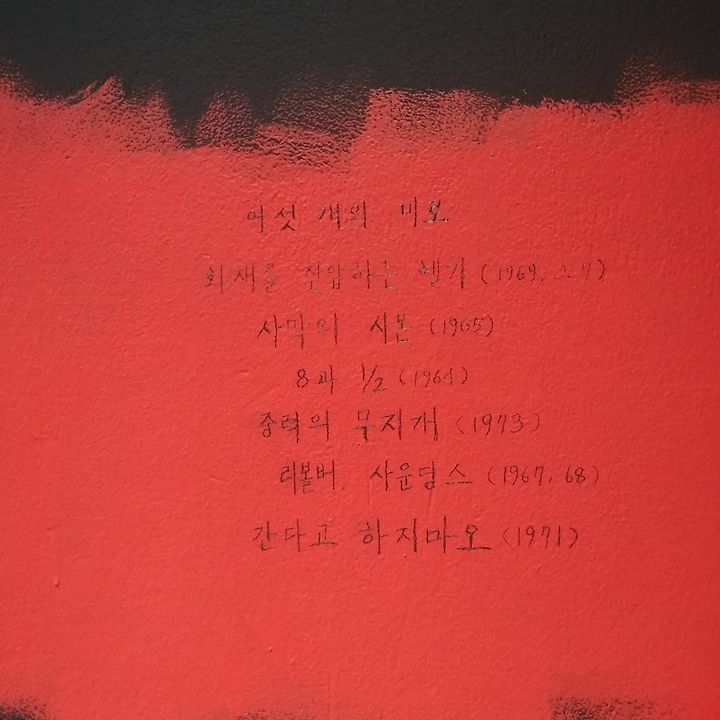 여섯 개의 미로
화재를 진압하는 헬기 (1969.
사막의 시본 (1965)
8과 1/2 (1964)
중력의 무지개 (1973)
리볼버. 사운딩스 (1967, 68)
간다고 하지마오 (1971)